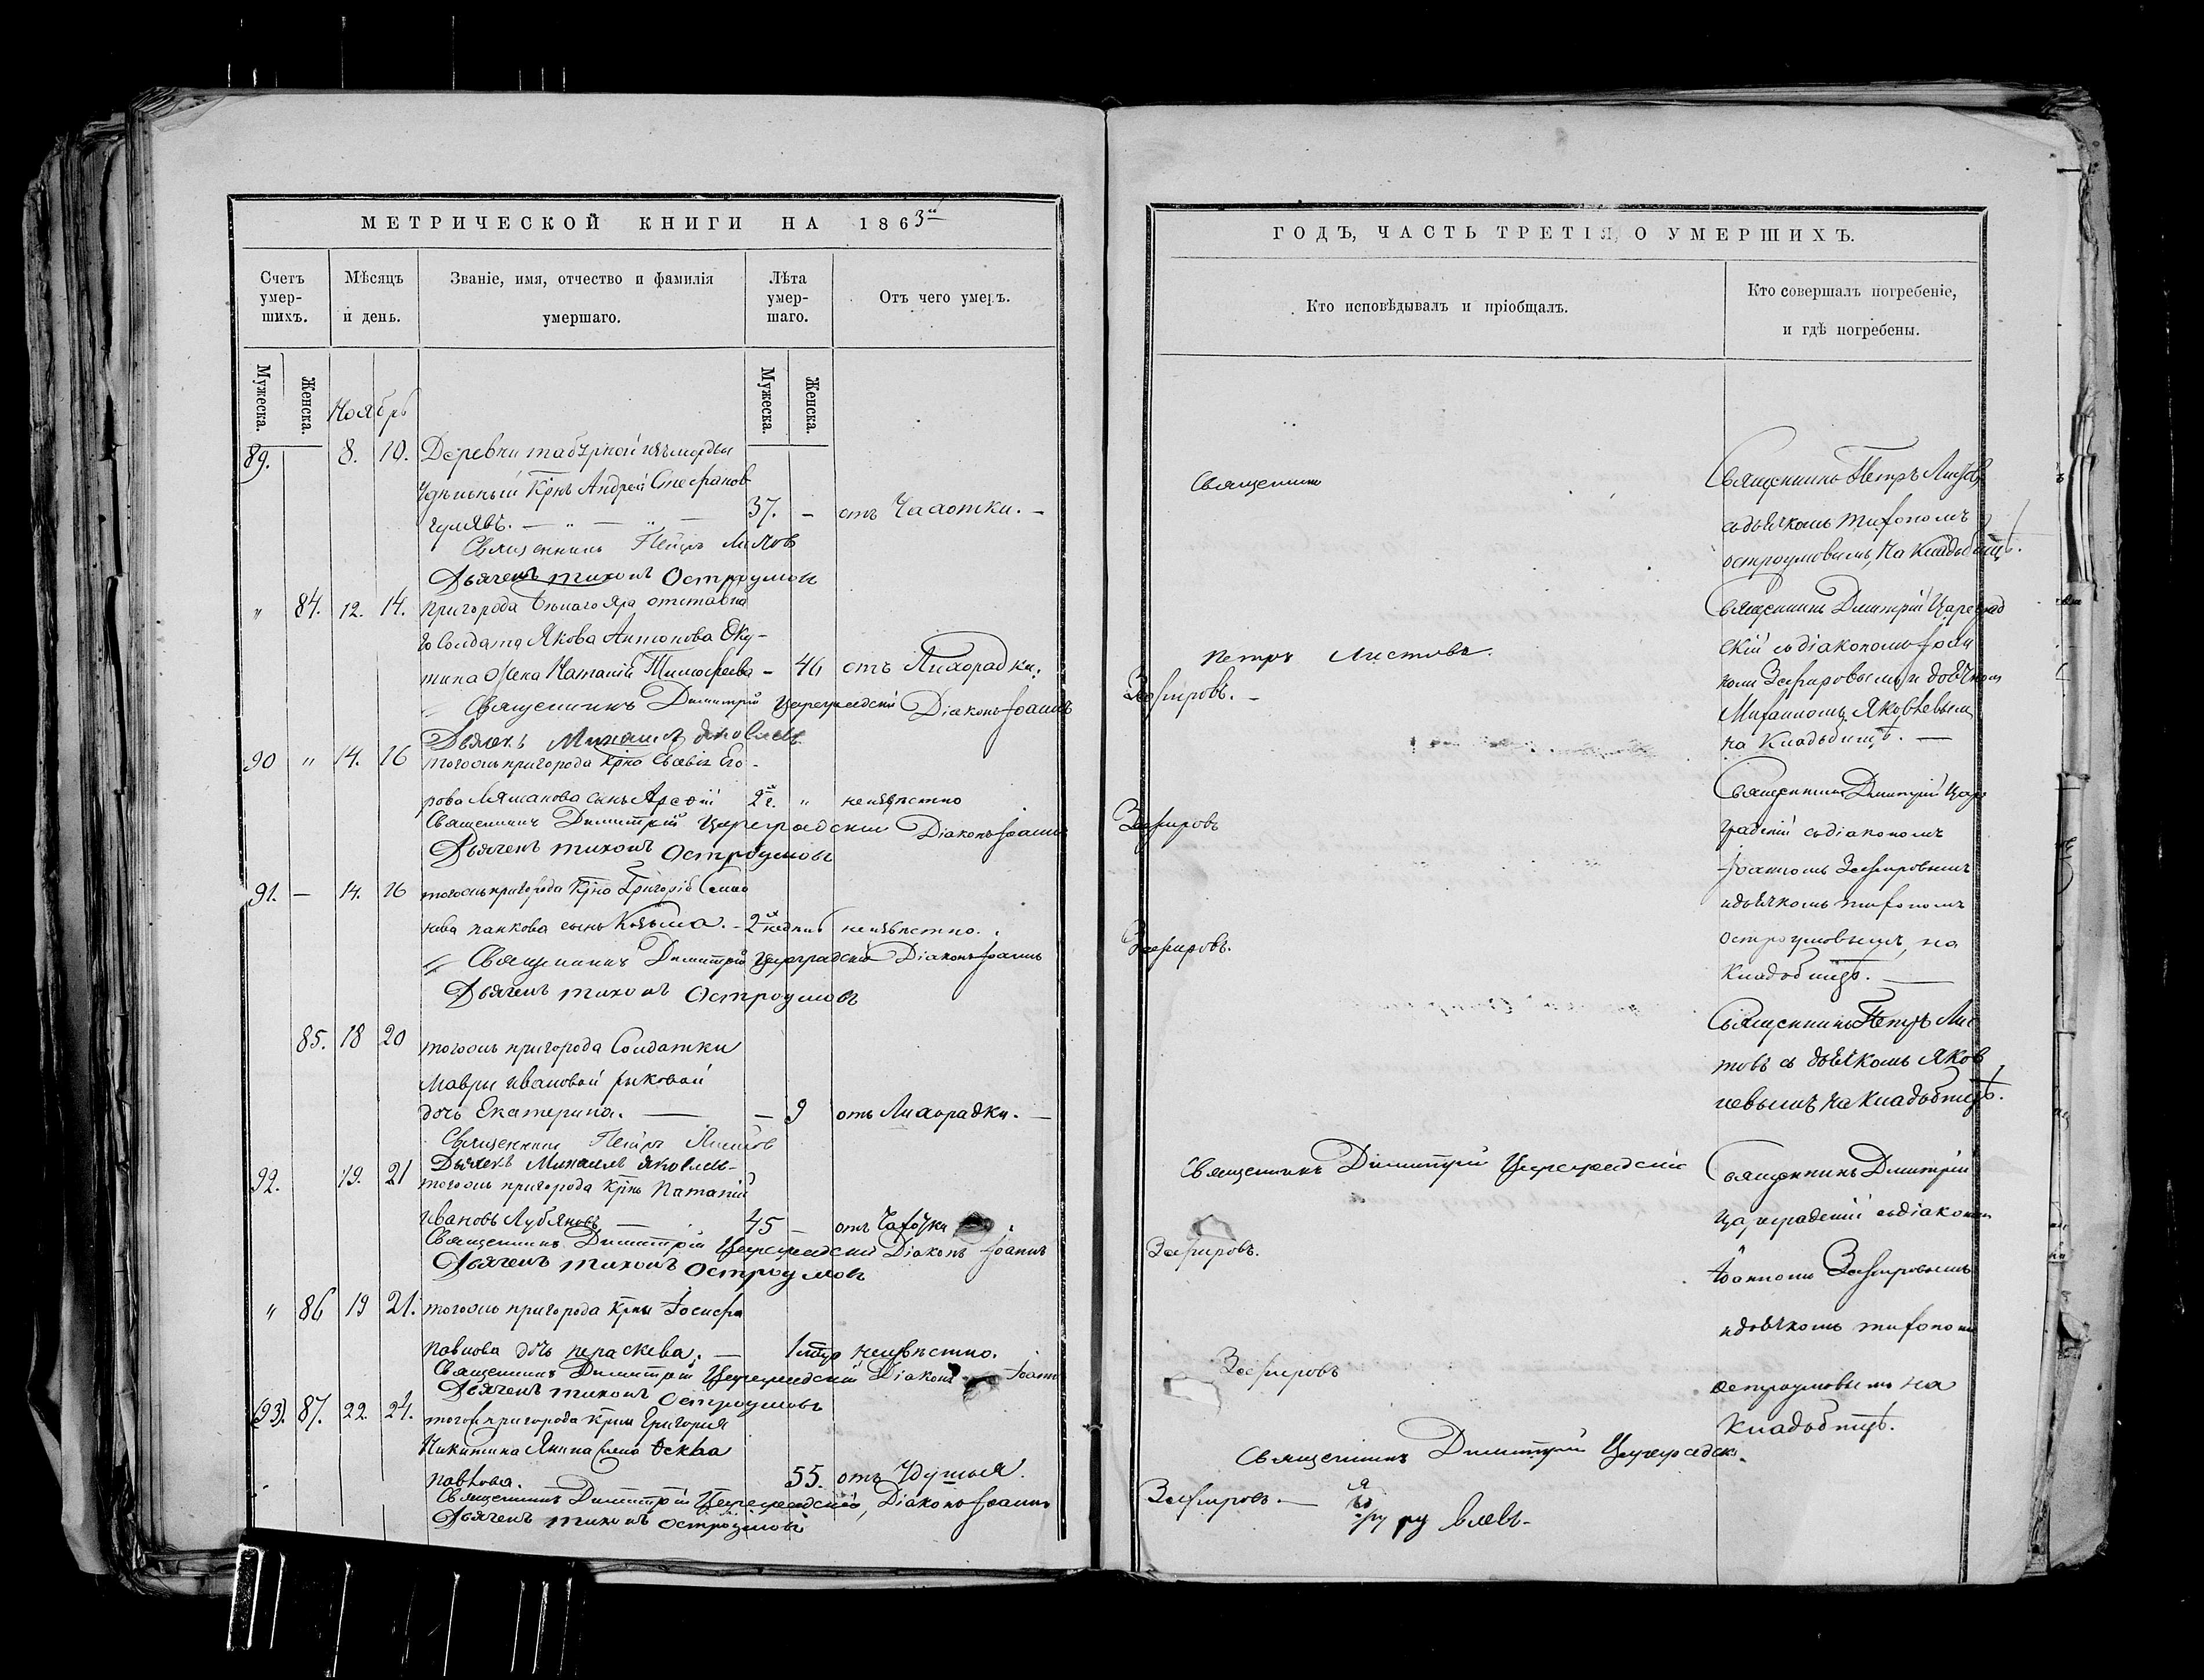 МЕТРИЧЕСКОЙ КНИГИ НА 1863й
Счетъ умер-шихъ.
Мѣсяцъ и день.
Званіе, имя, отчество и фамилія умершаго.
Лѣта умер-шаго.
Отъ чего умеръ.
Мужеска.
Женска.
Ноябрь
Мужеска.
Женска.
89. 8. 10. Деревни
Удѣльный Крнъ Андрей Стефановъ
37. - отъ Чахотки. -
Священникъ Петръ Листовъ
Дьячекъ Тихонъ Остроумовъ
" 84. 12. 14. пригорода Бѣлаго Яра отставна
го Солдата Якова Антонова Оку-
тина жена Наталія Тимофеева - 46 отъ Лихорадки.
Священникъ Димитрій Цареградскій Діаконъ Іоаннъ
Дьячекъ Михаилъ Яковлевъ
90 " 14. 16 тогожъ пригорода Крна Его-
рова сынъ 2 г. " неизвѣстно
Священникъ Димитрій Цареградскій Діаконъ Іоаннъ
Дьячекъ Тихонъ Остроумовъ
91. - 14. 16 тогожъ пригорода Крна Григорія Семио
нова панкова сынъ Козьма. - 2 недѣль неизвѣстно.
Священникъ Димитрій Цареградскій Діаконъ Іоаннъ
Дьячекъ Тихонъ Остроумовъ
85. 18 20 тогожъ пригорода Солдатки
Мавры Ивановой рыковой
дочь Екатерина. - 9 отъ Лихорадки. -
Священникъ Петръ Листовъ
Дьячекъ Михаилъ Яковлевъ
92. 19. 21 тогожъ пригорода Крнъ
Ивановъ Лубяновъ 45 - отъ Чахотки
Священникъ Димитрій Цареградскій Діаконъ Іоаннъ
Дьячекъ Тихонъ Остроумовъ
" 86 19 21. тогожъ пригорода Крна Іосифа
павлова дочь параскева. - неизвѣстно.
Священникъ Димитрій Цареградскій Діаконъ Іоаннъ
Дьячекъ Тихонъ Остроумовъ
(93). 87. 22. 24. тогожъ пригорода Крна Григорія
Никитина
павлова. 55. отъ Удушья.
Священникъ Димитрій Цареградскій, Діаконъ Іоаннъ
Дьячекъ Тихонъ Остроумовъ
ГОДЪ, ЧАСТЬ ТРЕТІЯ, О УМЕРШИХЪ.
Кто исповѣдывалъ и пріобщалъ.
Кто совершалъ погребеніе, и гдѣ погребены.
Священникъ
Петръ Листовъ.
Зефировъ. -
Зефировъ
Зефировъ.
Священникъ Димитрій Цареградскій
Зефировъ.
Зефировъ
Священникъ Димитрій Цареградск.
Зефировъ. -
Священникъ Петръ Листовъ
съ дьячкомъ Тихономъ
остроумовымъ, на Кладбищѣ.
Священникъ Димитрій Цареград
скій съ діакономъ Іоан
номъ Зефировымъ и дьячкомъ
Михаиломъ Яковлевым
на Кладбищѣ. -
Священникъ Димитрій Царе
градскій съ діакономъ
Іоанномъ Зефировымъ
и дьячкомъ Тихономъ
Остроумовымъ, на
Кладбищѣ.
Священникъ Петръ Лис
товъ съ дьячкомъ Яков
левымъ на Кладбищѣ.
Священникъ Димитрій
Цареградскій съ діаконом
Іоанномъ Зефировымъ
и дьячкомъ Тихоном
остроумовымъ на
Кладбищѣ.